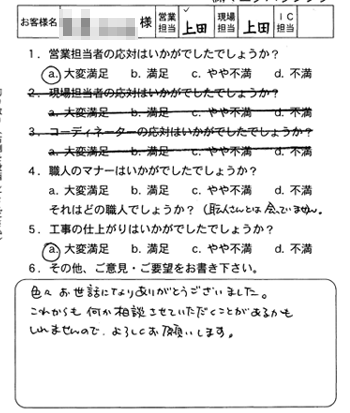 お客様名 様 営業担当 上田 現場担当 上田 IC担当
1．営業担当者の応対はいかがでしたでしょうか？
a. 大変満足 b. 満足 c. やや不満 d. 不満
2．現場担当者の応対はいかがでしたでしょうか？
a. 大変満足 b. 満足 c. やや不満 d. 不満
3．コーディネーターの応対はいかがでしたでしょうか？
a. 大変満足 b. 満足 c. やや不満 d. 不満
4．職人のマナーはいかがでしたでしょうか？
a. 大変満足 b. 満足 c. やや不満 d. 不満
それはどの職人でしょうか？（職人さんとは会っていません。
5．工事の仕上がりはいかがでしたでしょうか？
a. 大変満足 b. 満足 c. やや不満 d. 不満
6．その他、ご意見・ご要望をお書き下さい。
色々お世話になりありがとうございました。
これからも何か相談させていただくことがあるかも
しれませんので、よろしくお願いします。